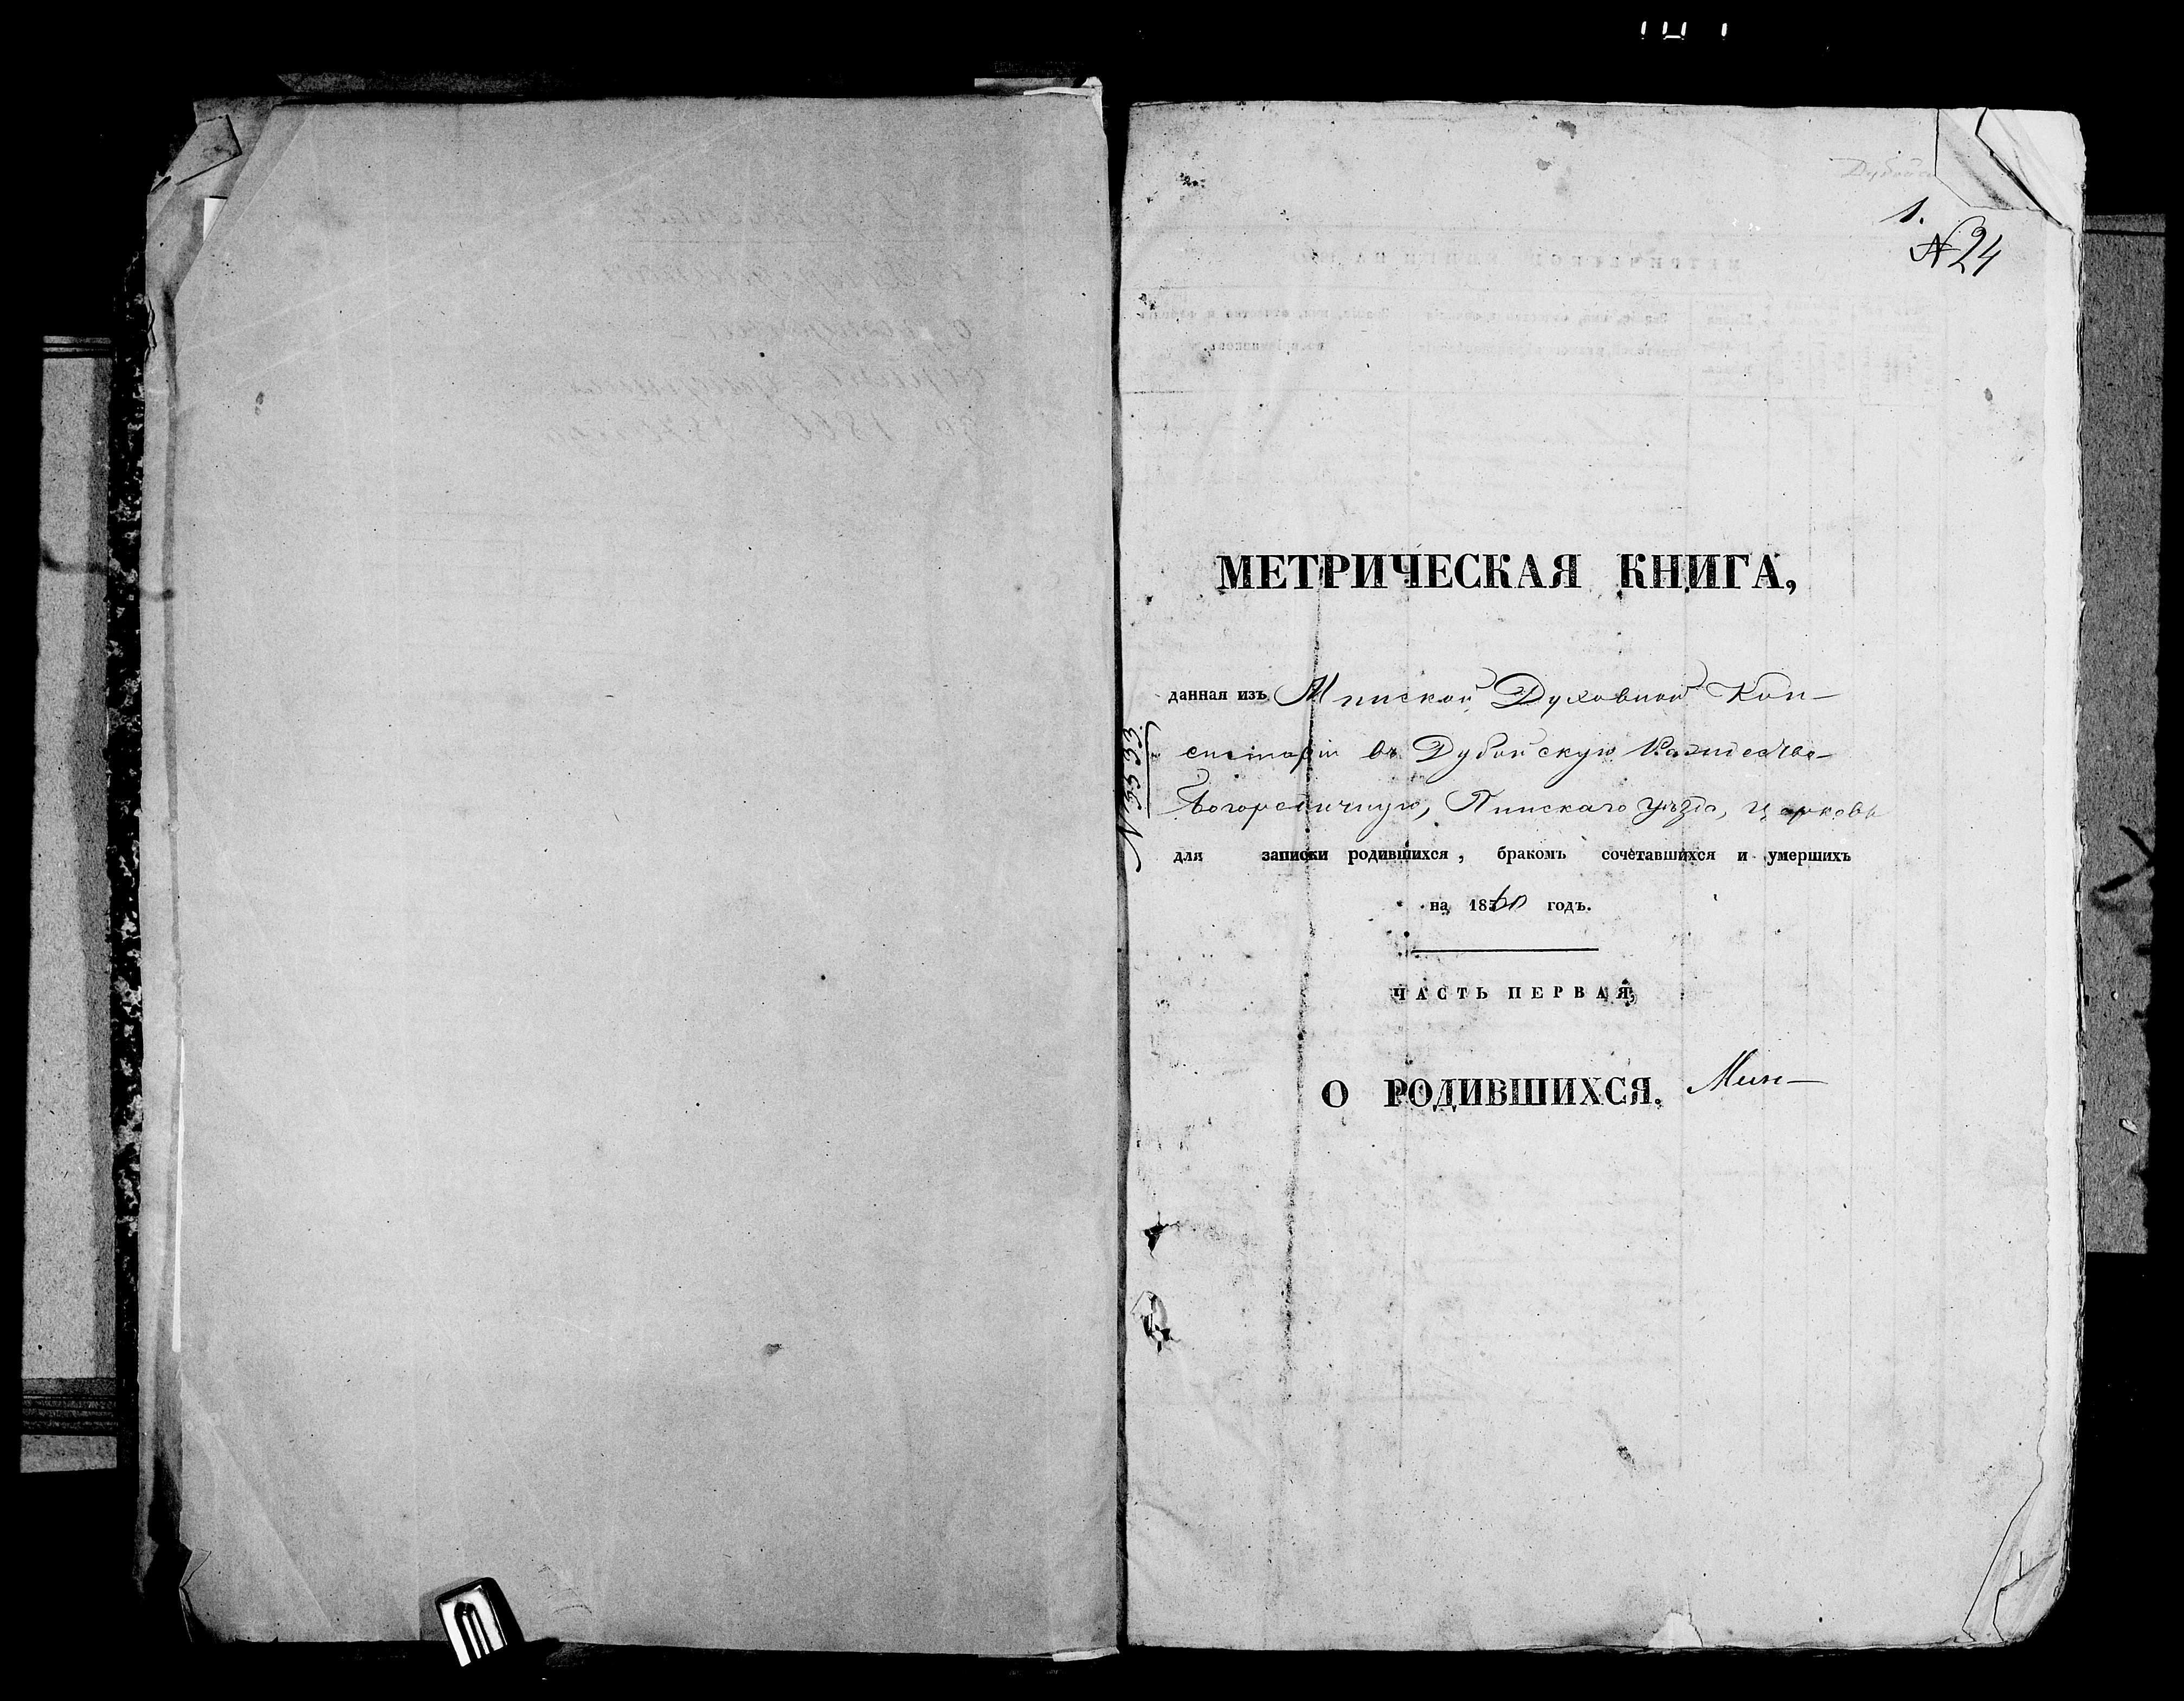 1.
№ 24
МЕТРИЧЕСКАЯ КНИГА,
данная изъ Минской Духовной Кон-
систоріи въ Дубойскую Рождество-
Богородичную, Пинскаго уѣзда, церковь
№ 3533
для записки родившихся, бракомъ сочетавшихся и умершихъ
на 1860 годъ.
ЧАСТЬ ПЕРВАЯ,
О РОДИВШИХСЯ.
Мин-